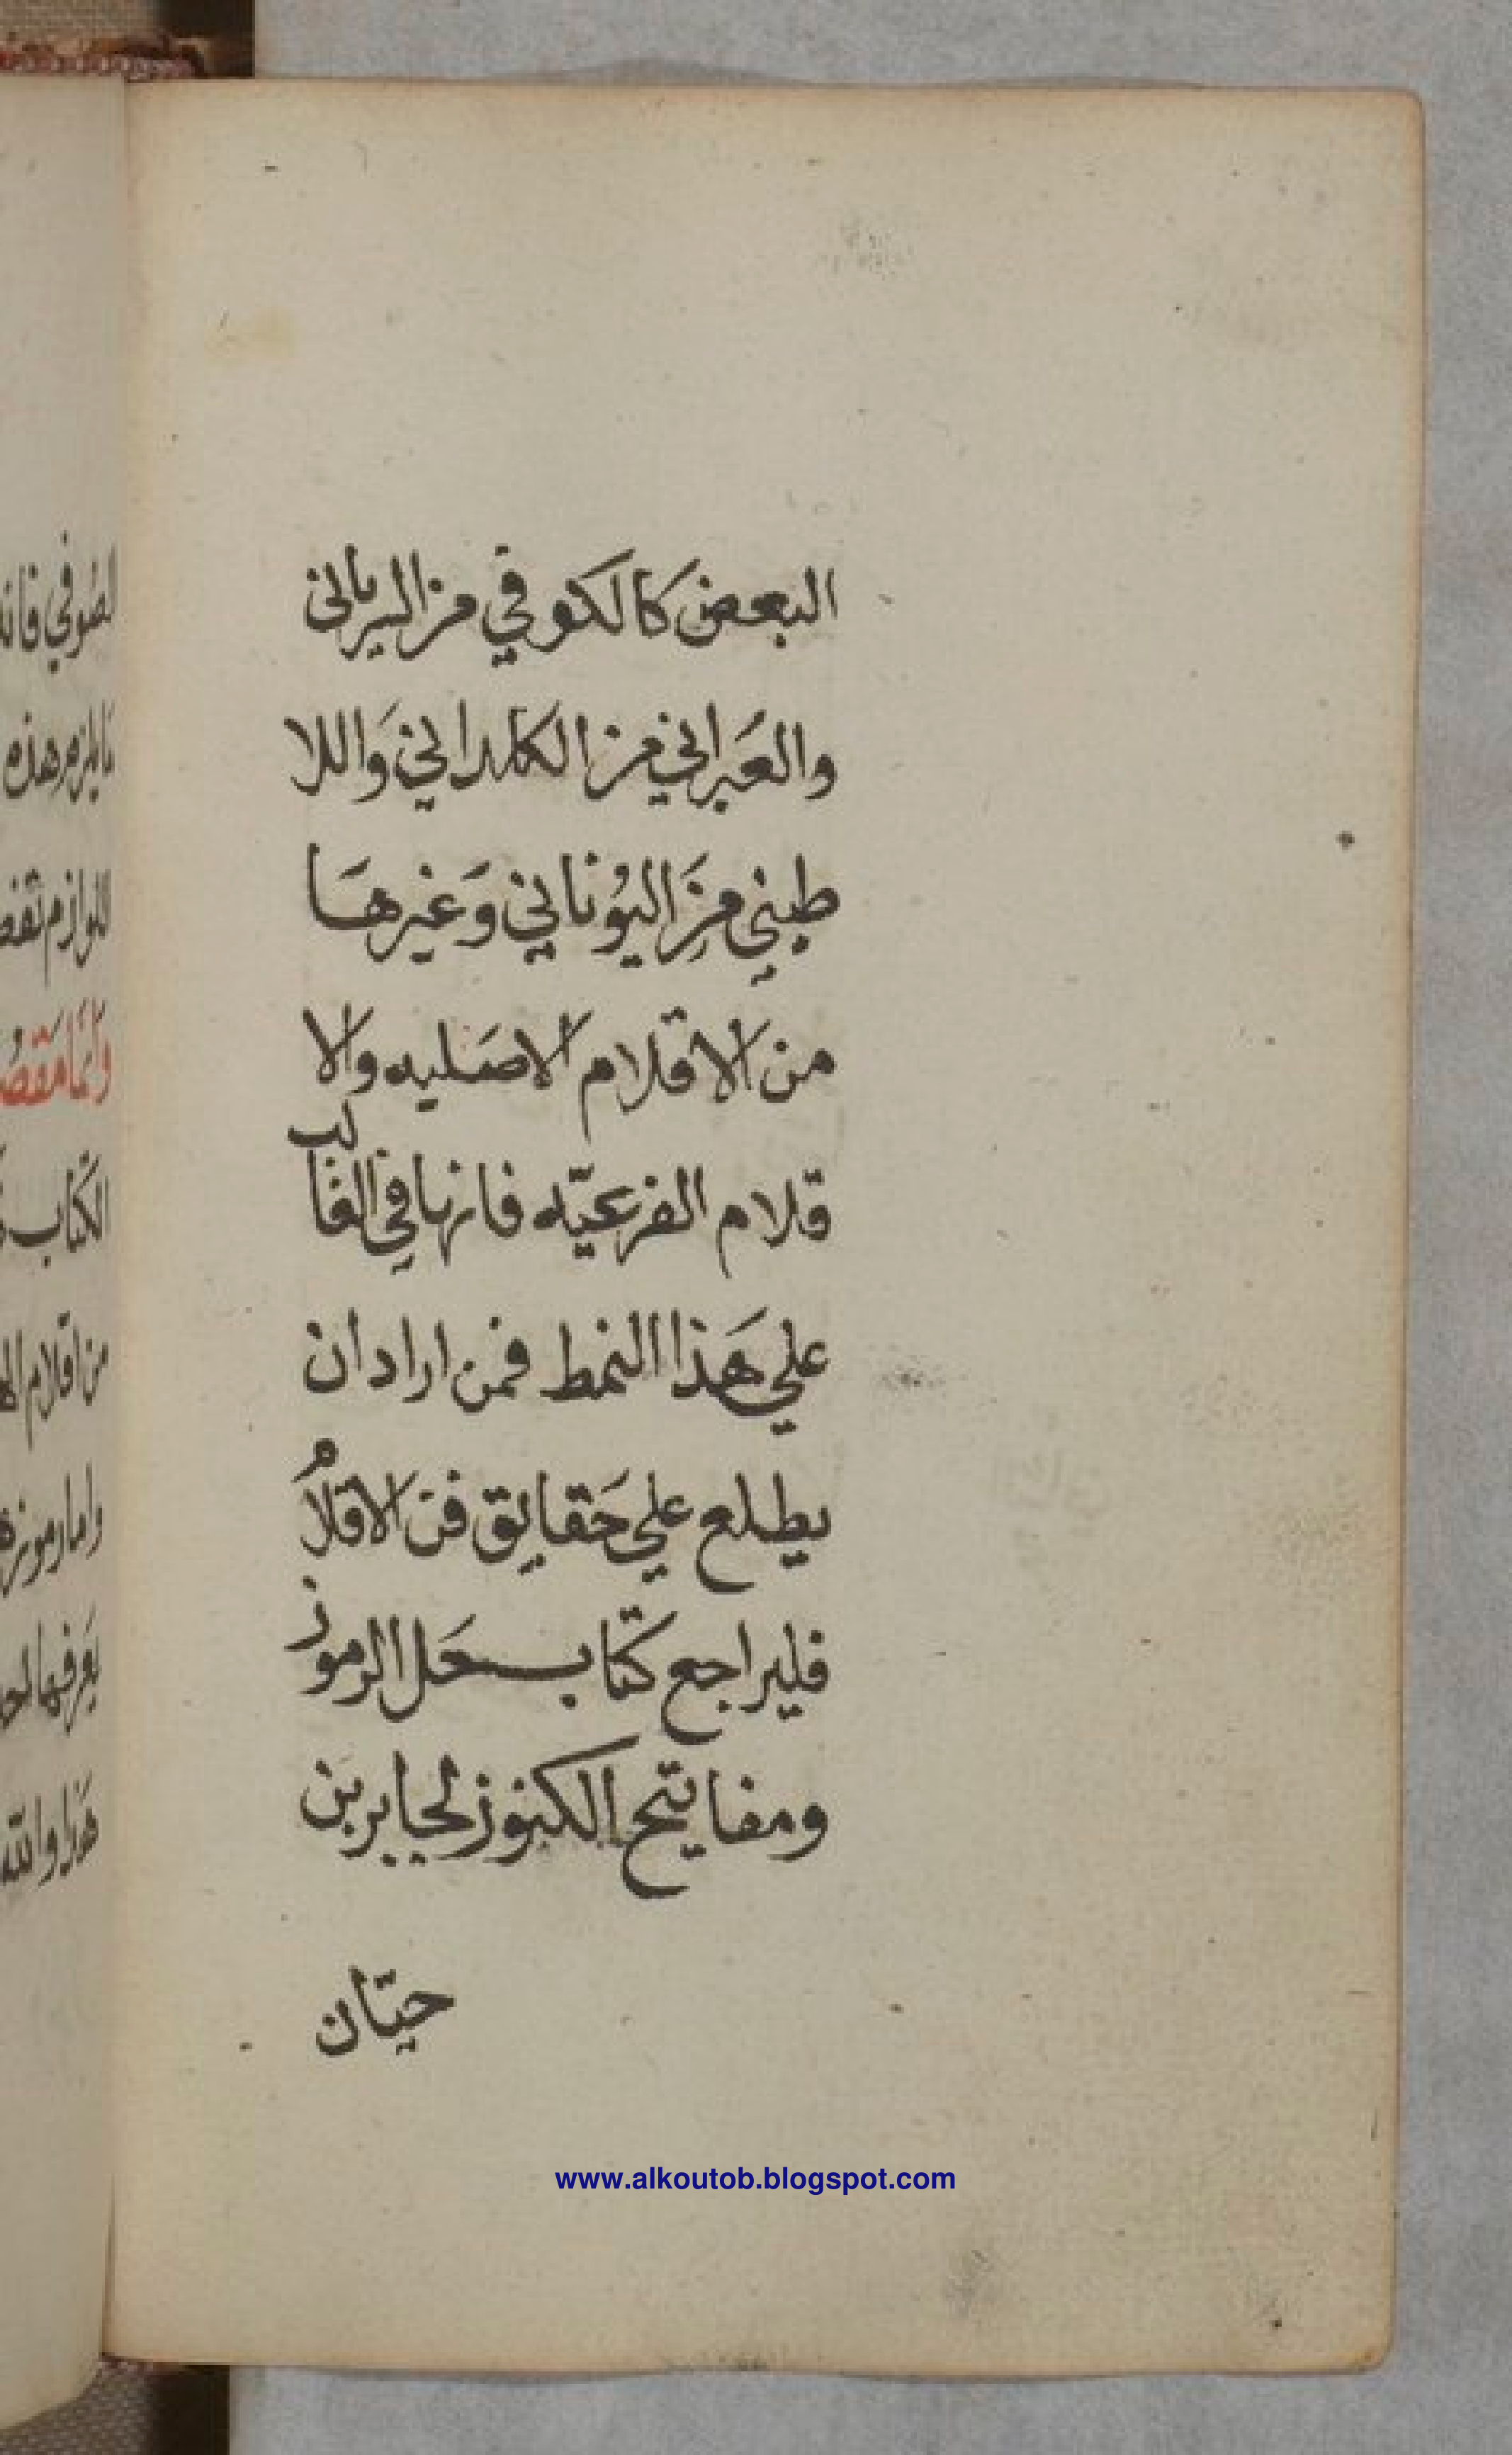 البعض كالكوفي من السرياني
والعَبراني من الكلداني وَاللا
طيني مِنَ اليُوناني وَغيرهَا
من الاقلام الاصَليه والا
قلام الفرعيّه فانها في الغالب
علي هَذا النمط فمن اراد ان
يطلع علي حَقايق فن الاقلامُ
فليراجع كتاب حَل الرموز
ومفاتيح الكنوز لجابر بن
حيّان
www.alkoutob.blogspot.com